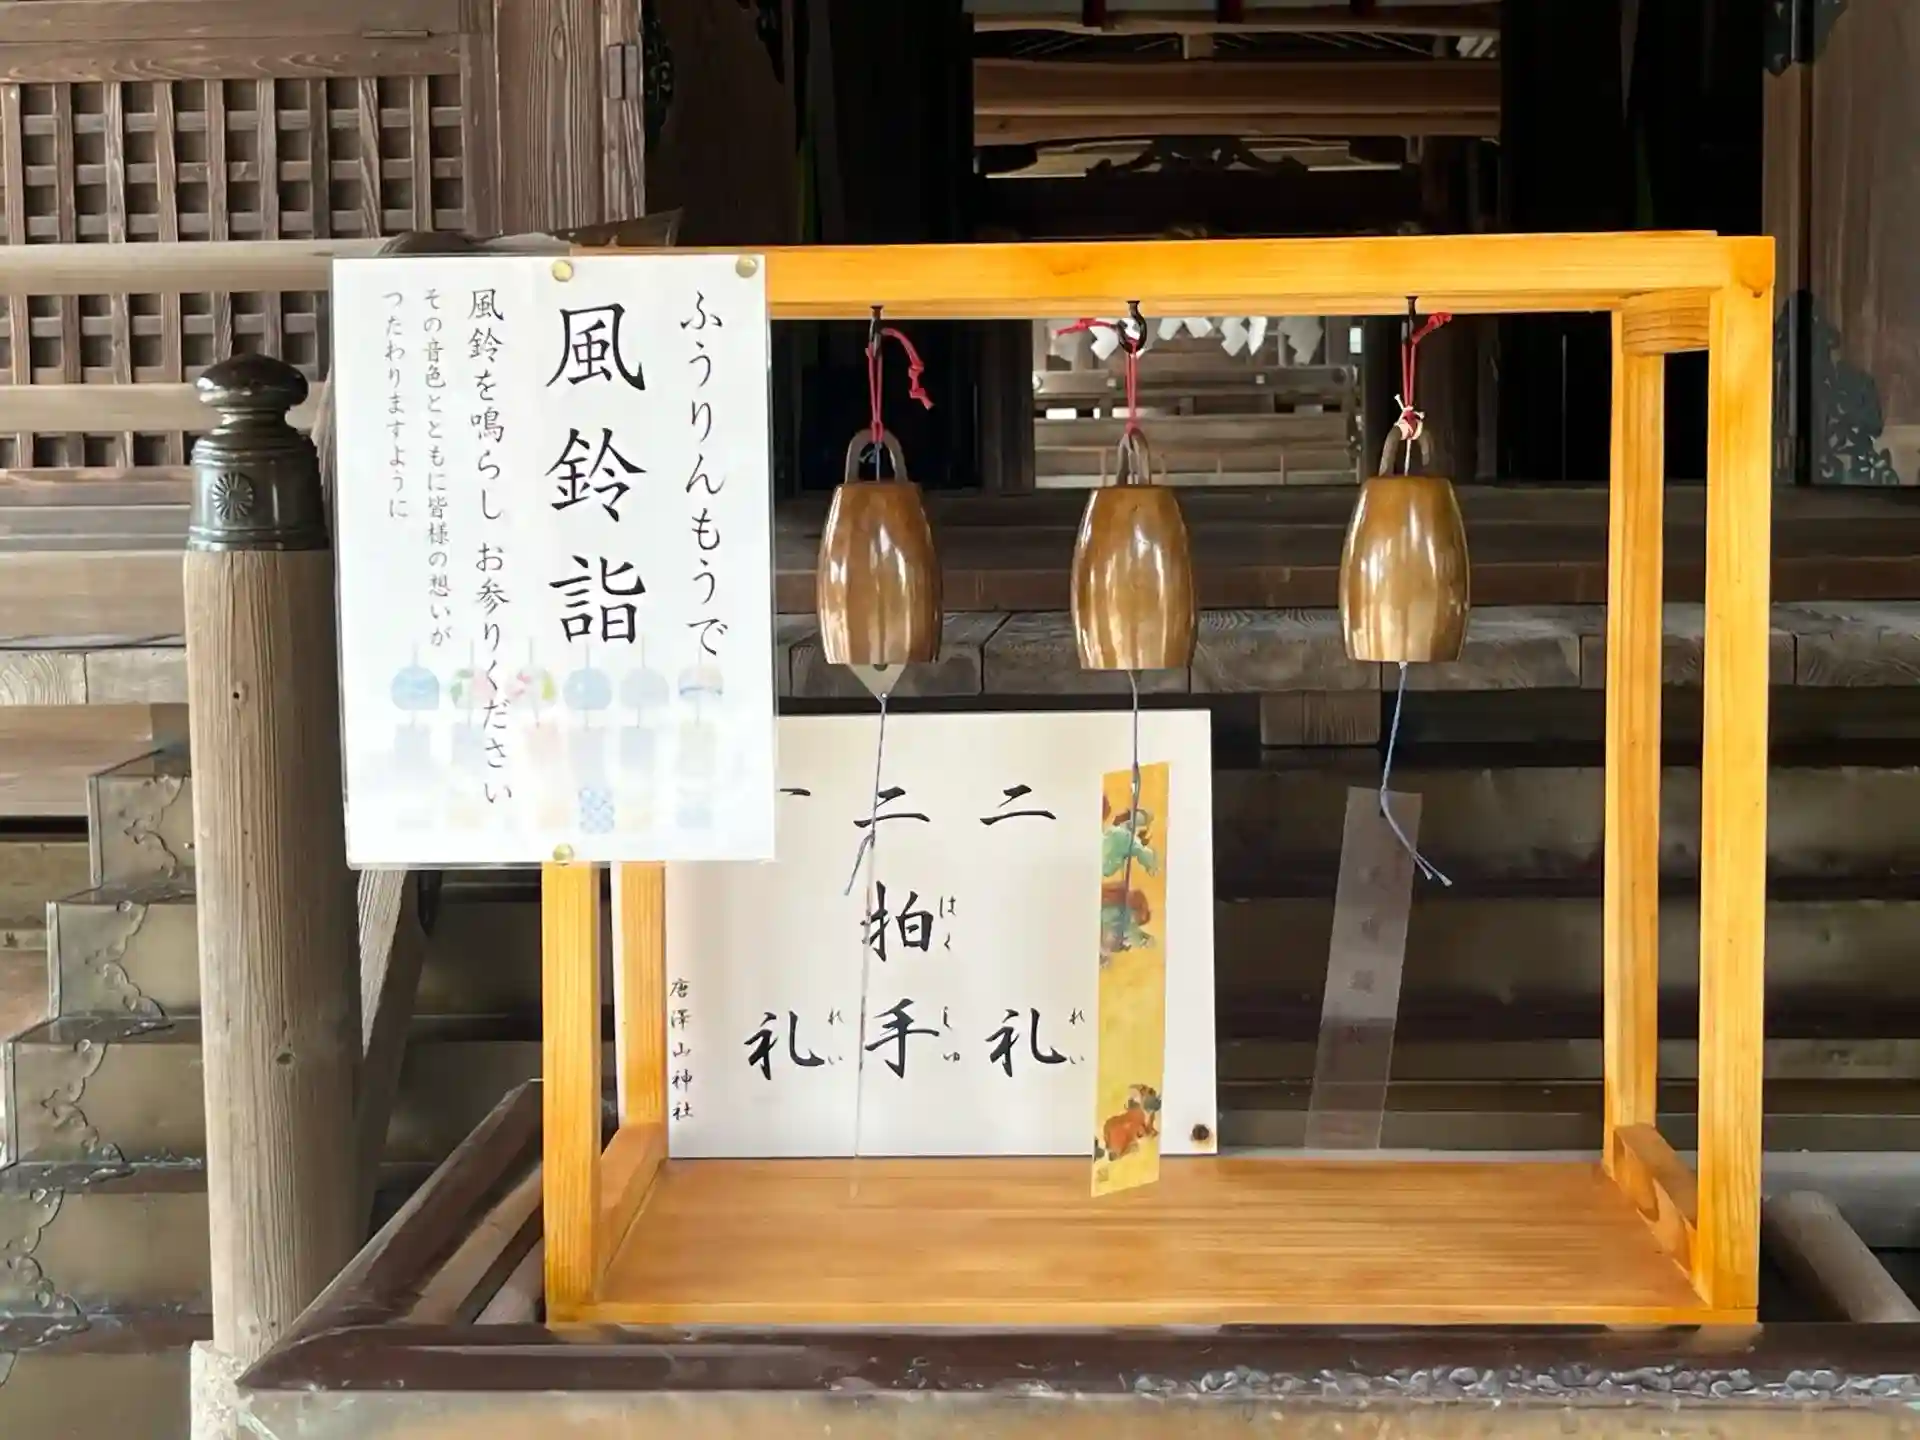 ふうりんもうで
風鈴詣
風鈴を鳴らし お参りください
その音色とともに皆様の想いが
つたわりますように
二礼
れい
二拍手
はくしゆ
一礼
れい
唐澤山神社